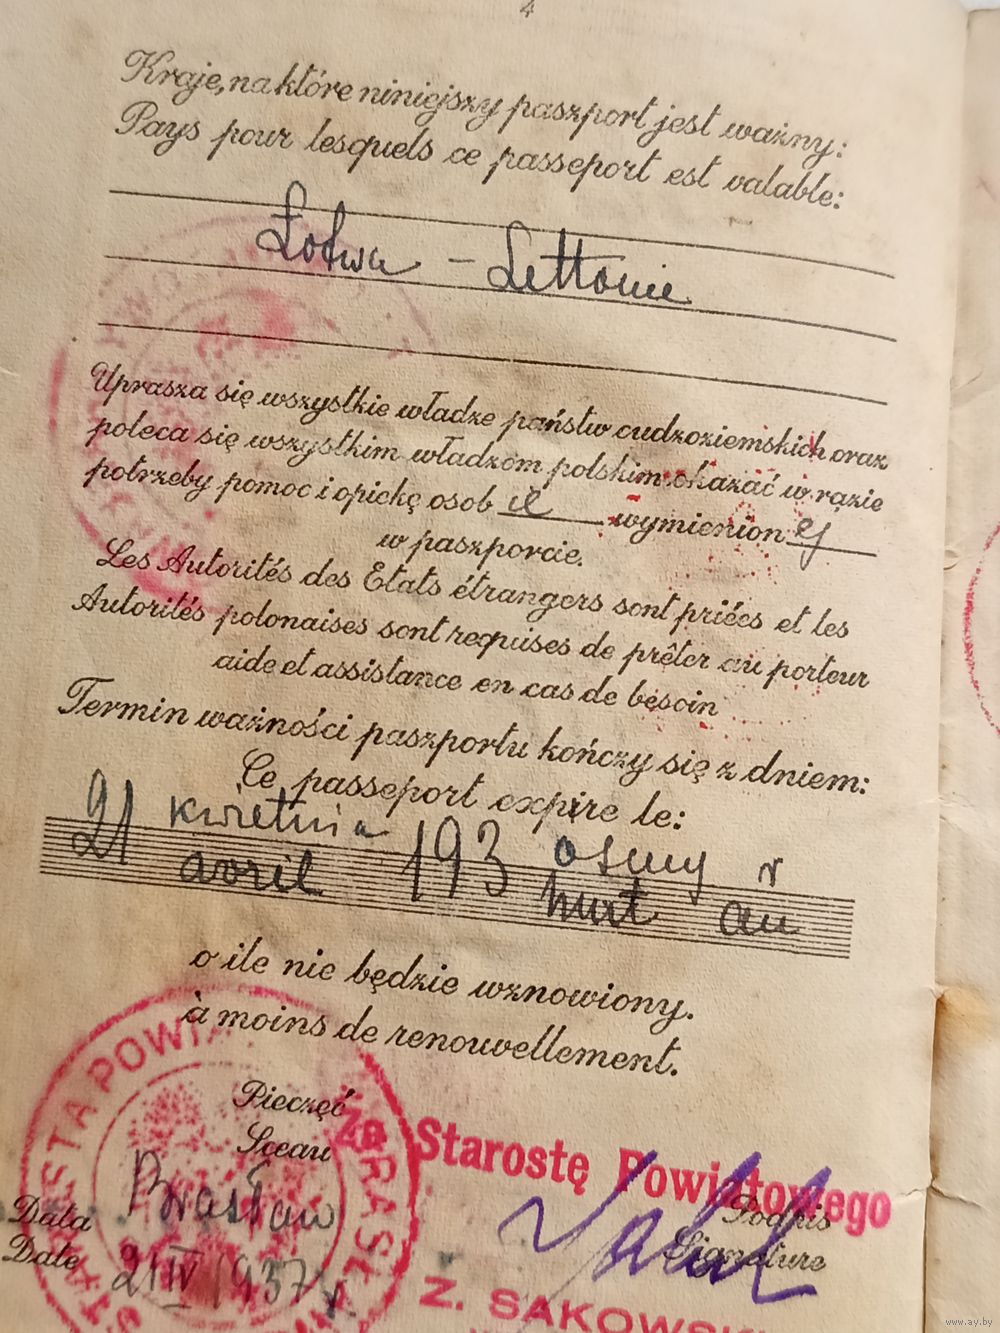 4
Kraje, na które niniejszy paszport jest ważny:
Pays pour lesquels ce passeport est valable:
Łotwa – Lettonie
Uprasza się wszystkie władze państw cudzoziemskich oraz
poleca się wszystkim władzom polskim okazać w razie
potrzeby pomoc i opiekę osob ie wymienion ej
w paszporcie.
Les Autorités des Etats étrangers sont priées et les
Autorités polonaises sont requises de prêter au porteur
aide et assistance en cas de besoin
Termin ważności paszportu kończy się z dniem:
Ce passeport expire le:
21 kwietnia 193 osmy r
avril huit an
o ile nie będzie wznowiony.
à moins de renouvellement.
Pieczęć
Sceau
STAROSTA POWIA BRASŁAW
Za Starostę Powiatowego
Data Brasław Podpis
Date 21 IV 1937 r. Signature
Z. SAKOWSK
www.ay.by